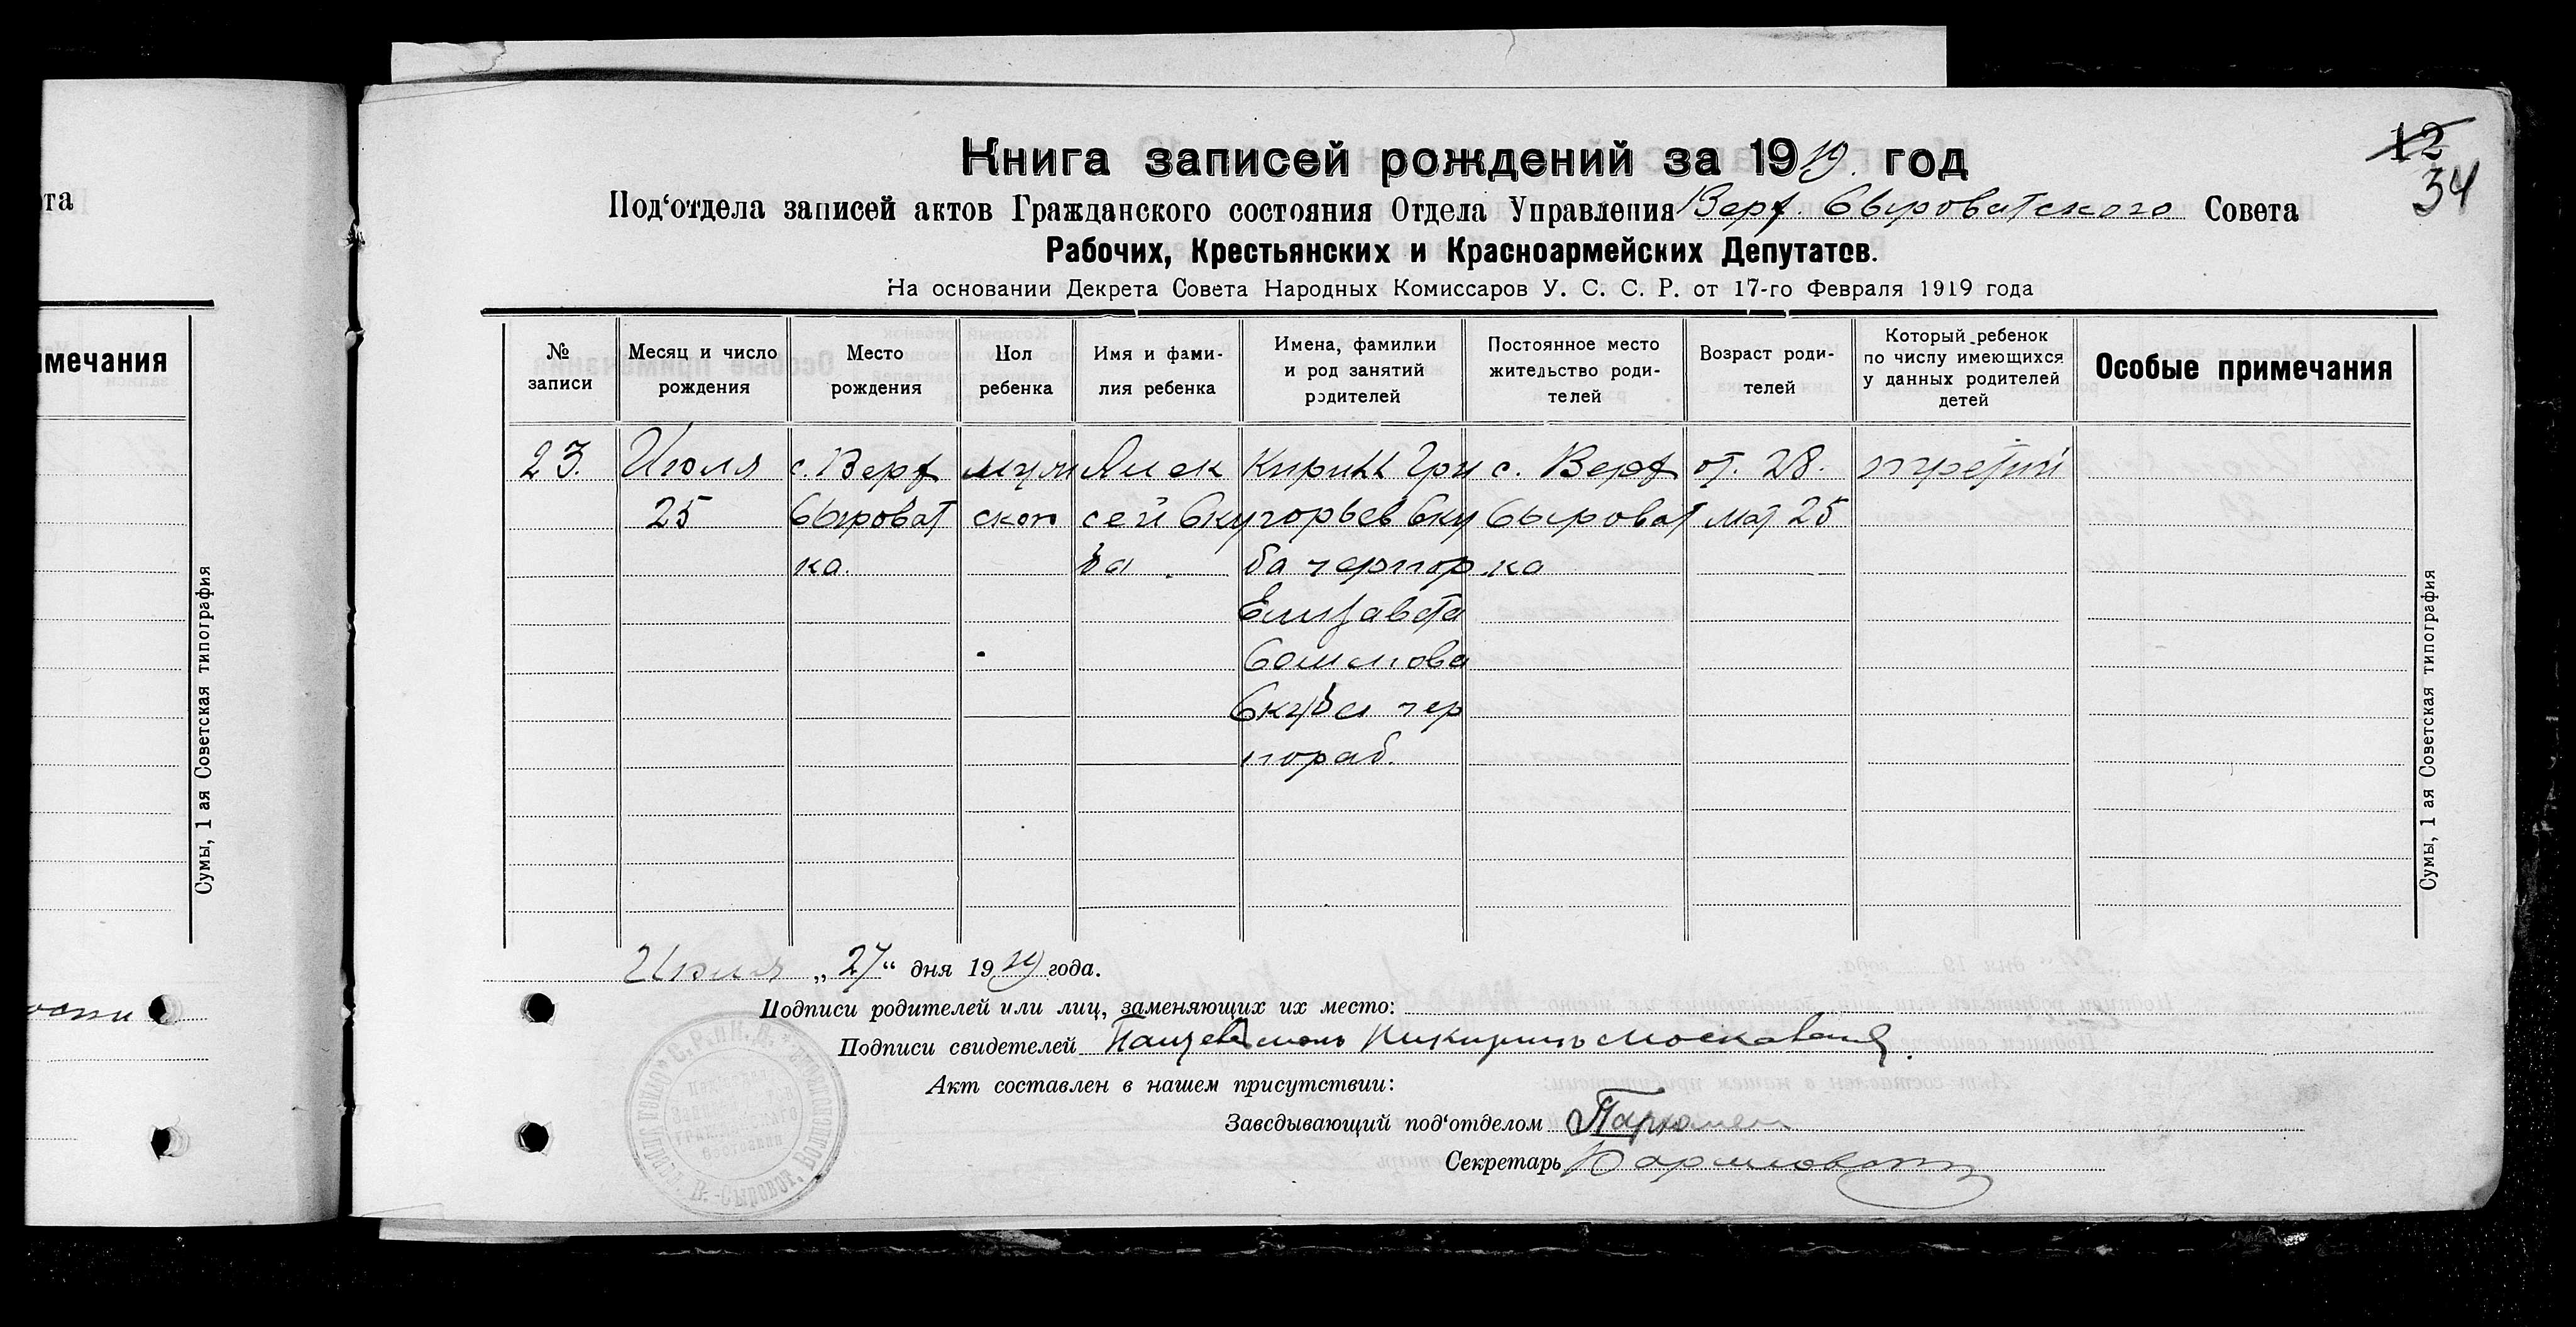 та
имечания
Сумы, 1 ая Советская типография
12
34
Книга записей рождений за 1919. год
Под‘отдела записей актов Гражданского состояния Отдела Управления Верх. Сыроватского Совета
Рабочих, Крестьянских и Красноармейских Депутатов.
На основании Декрета Совета Народных Комиссаров У. С. С. Р. от 17-го Февраля 1919 года
№ записи
Месяц и число рождения
Место рождения
Пол ребенка
Имя и фами-
лия ребенка
Имена, фамилии
и род занятий
родителей
Постоянное место
жительство роди-
телей
Возраст роди-
телей
Который ребенок
по числу имеющихся
у данных родителей
детей
Особые примечания
23.
Июля
25
с. Верх
Сыроват
ка.
муж
ской
Алек
сей Ску
ба.
Кирилл Гри
горьев Ску
ба чернор
Елизавета
Семенова
Скуба чер
нораб.
с. Верх
Сыроват
ка
от. 28.
мат 25
третий
Июля „27“ дня 1919 года.
Подписи родителей или лиц, заменяющих их место:
Подписи свидетелей
Акт составлен в нашем присутствии:
Заведывающий под‘отделом
Секретарь
Сумы, 1 ая Советская типография